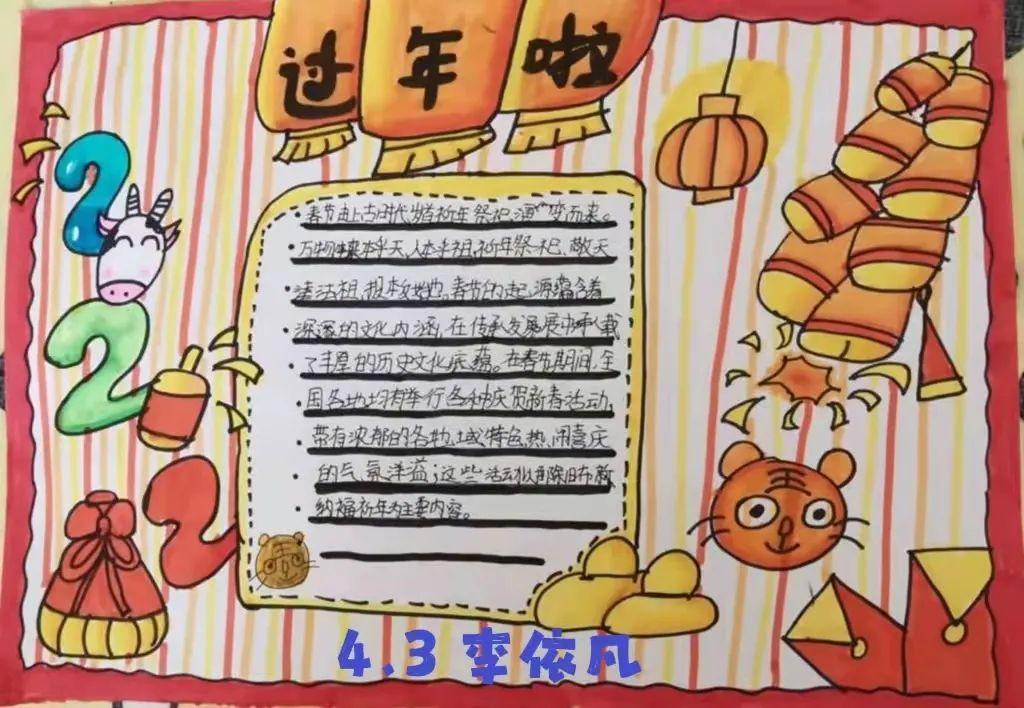 过年啦
2
2
2
春节由上古时代岁首祈年祭祀演变而来。
万物本乎天,人本乎祖,祈年祭祀、敬天
法祖,报本反始也。春节的起源蕴含着
深邃的文化内涵,在传承发展中承载
了丰厚的历史文化底蕴。在春节期间,全
国各地均有举行各种庆贺新春活动,
带有浓郁的各地域特色,热闹喜庆
的气氛洋溢;这些活动以除旧布新
纳福祈年为主要内容。
4.3 李依凡